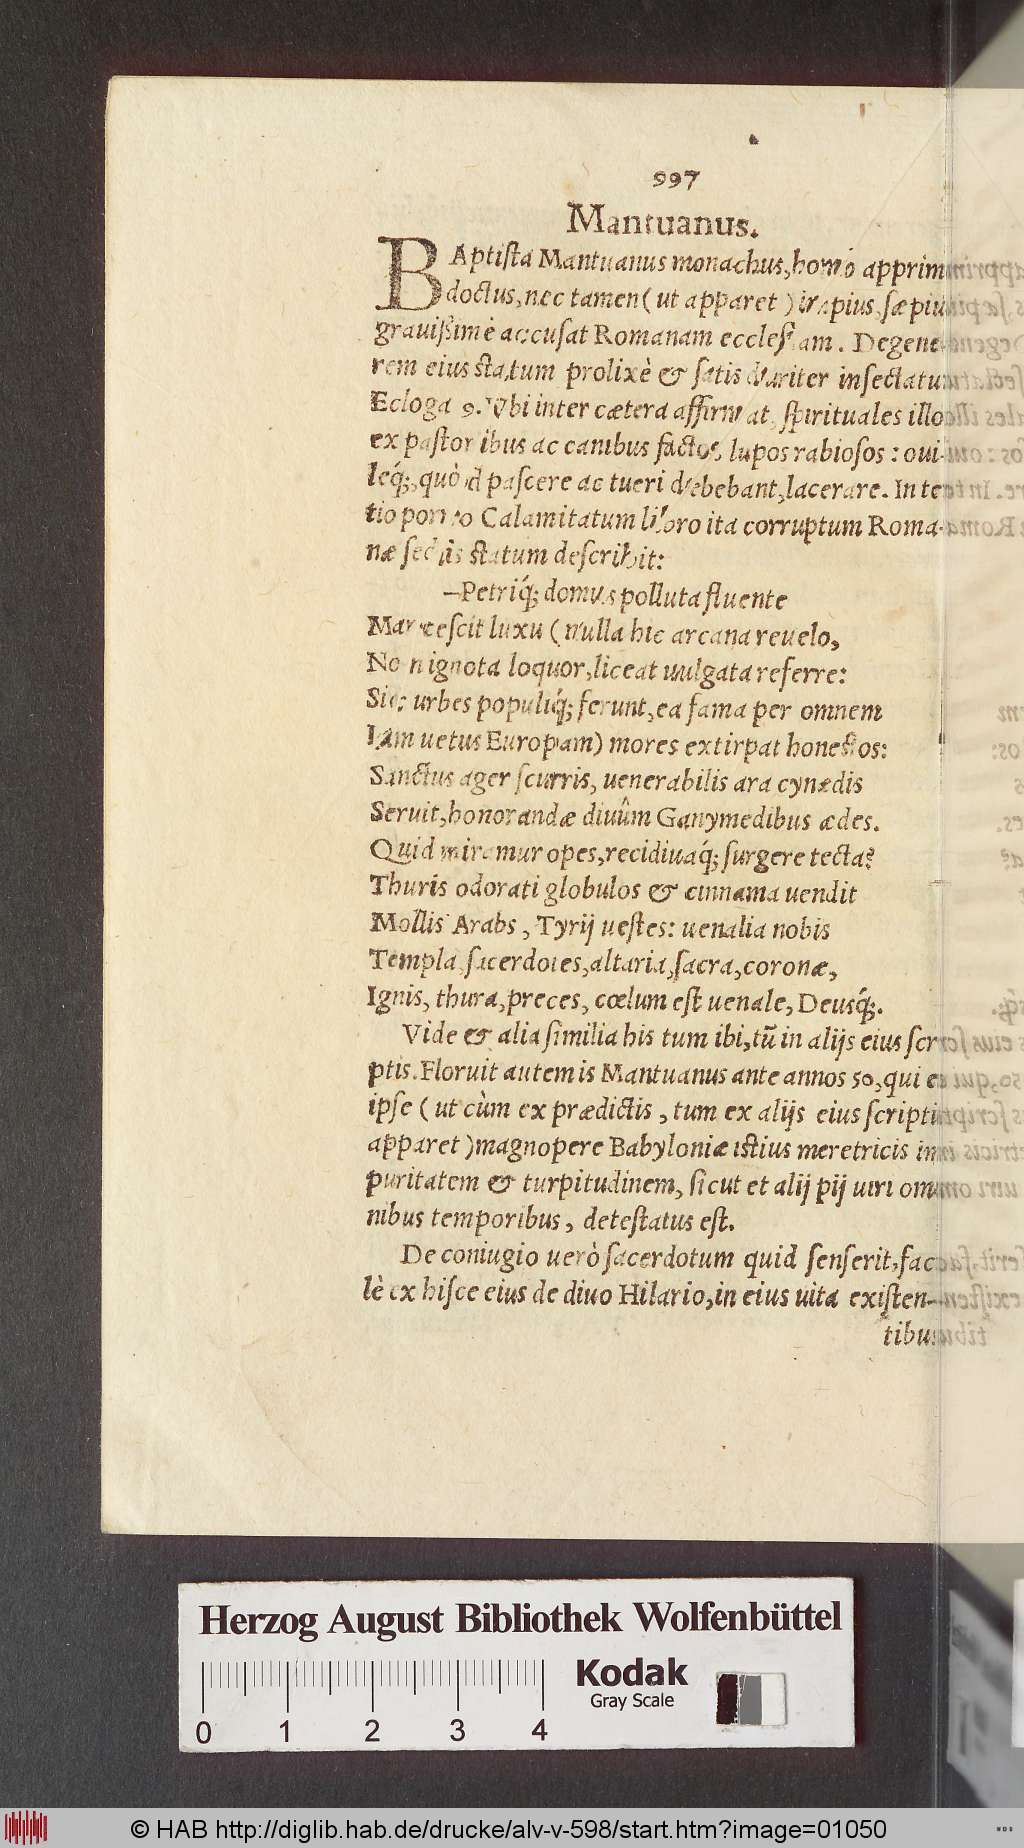 997
Mantuanus.
BAptista Mantuanus monachus, homo apprim
doctus, nec tamen ( ut apparet ) impius, sæpius
grauißimè accusat Romanam ecclesiam. Degene-
rem eius statum prolixè & satis duriter insectatur
Ecloga 9. Vbi inter cætera affirmat, spirituales illos
ex pastoribus ac canibus factos lupos rabiosos: oui-
leq́;, quòd pascere ac tueri debebant, lacerare. In ter
tio porro Calamitatum libro ita corruptum Roma-
næ sedis statum describit:
–Petriq́; domus polluta fluente
Marcescit luxu ( nulla hic arcana reuelo,
Non ignota loquor, liceat uulgata referre:
Sic urbes populiq́; ferunt, ea fama per omnem
Iam uetus Europam) mores extirpat honestos:
Sanctus ager scurris, uenerabilis ara cynædis
Seruit, honorandæ diuûm Ganymedibus ædes.
Quid miramur opes, recidiuaq́; surgere tecta?
Thuris odorati globulos & cinnama uendit
Mollis Arabs, Tyrij uestes: uenalia nobis
Templa, sacerdotes, altaria, sacra, coronæ,
Ignis, thura, preces, cœlum est uenale, Deusq́;.
Vide & alia similia his tum ibi, tũ in alijs eius scri
ptis. Floruit autem is Mantuanus ante annos 50, qui et
ipse ( ut cùm ex prædictis, tum ex alijs eius scriptis
apparet ) magnopere Babyloniæ istius meretricis im
puritatem & turpitudinem, sicut et alij pij uiri om
nibus temporibus, detestatus est.
De coniugio uerò sacerdotum quid senserit, faci
lè ex hisce eius de diuo Hilario, in eius uita existen-
tibus
Herzog August Bibliothek Wolfenbüttel
Kodak
Gray Scale
0 1 2 3 4
© HAB http://diglib.hab.de/drucke/alv-v-598/start.htm?image=01050